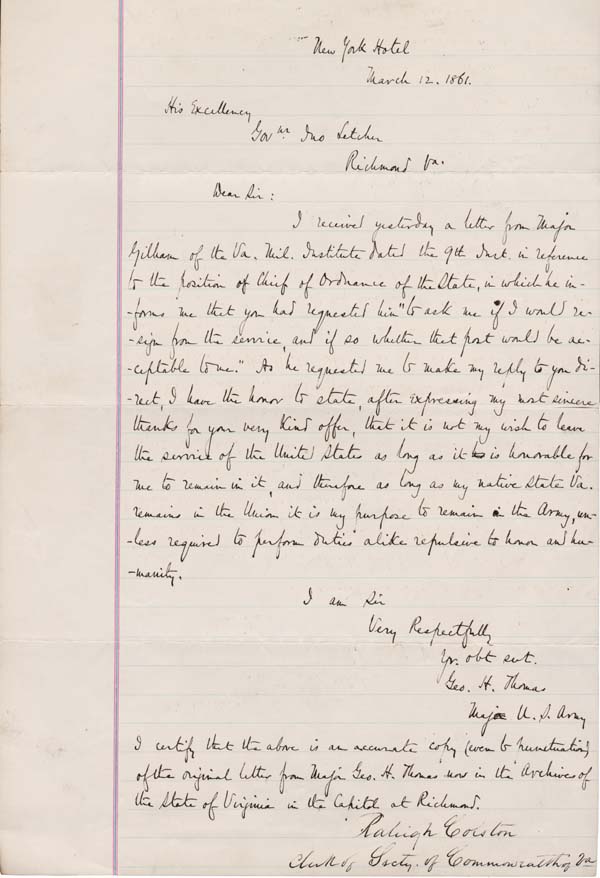 New York Hotel
March 12. 1861.
His Excellency
Govnr Jno Letcher
Richmond Va.
Dear Sir:
I received yesterday a letter from Major
Gilham of the Va. Mil. Institute dated the 9th Inst. in reference
to the position of Chief of Ordnance of the State, in which he in-
-forms me that you had requested him "to ask me if I would re-
-sign from the service, and if so whether that post would be ac-
-ceptable to me." As he requested me to make my reply to you di-
-rect, I have the honor to state, after expressing my most sincere
thanks for your very kind offer, that it is not my wish to leave
the service of the United States as long as it is honorable for
me to remain in it, and therefore as long as my native State Va.
remains in the Union it is my purpose to remain in the Army, un-
-less required to perform duties alike repulsive to honor and hu-
-manity.
I am Sir
Very Respectfully
Yr. obt svt.
Geo. H. Thomas
Major U. S. Army
I certify that the above is an accurate copy (even to punctuation)
of the original letter from Major Geo. H. Thomas now in the Archives of
the State of Virginia in the Capitol at Richmond.
Raleigh Colston
Clerk of Secty. of Commonwealth of Va